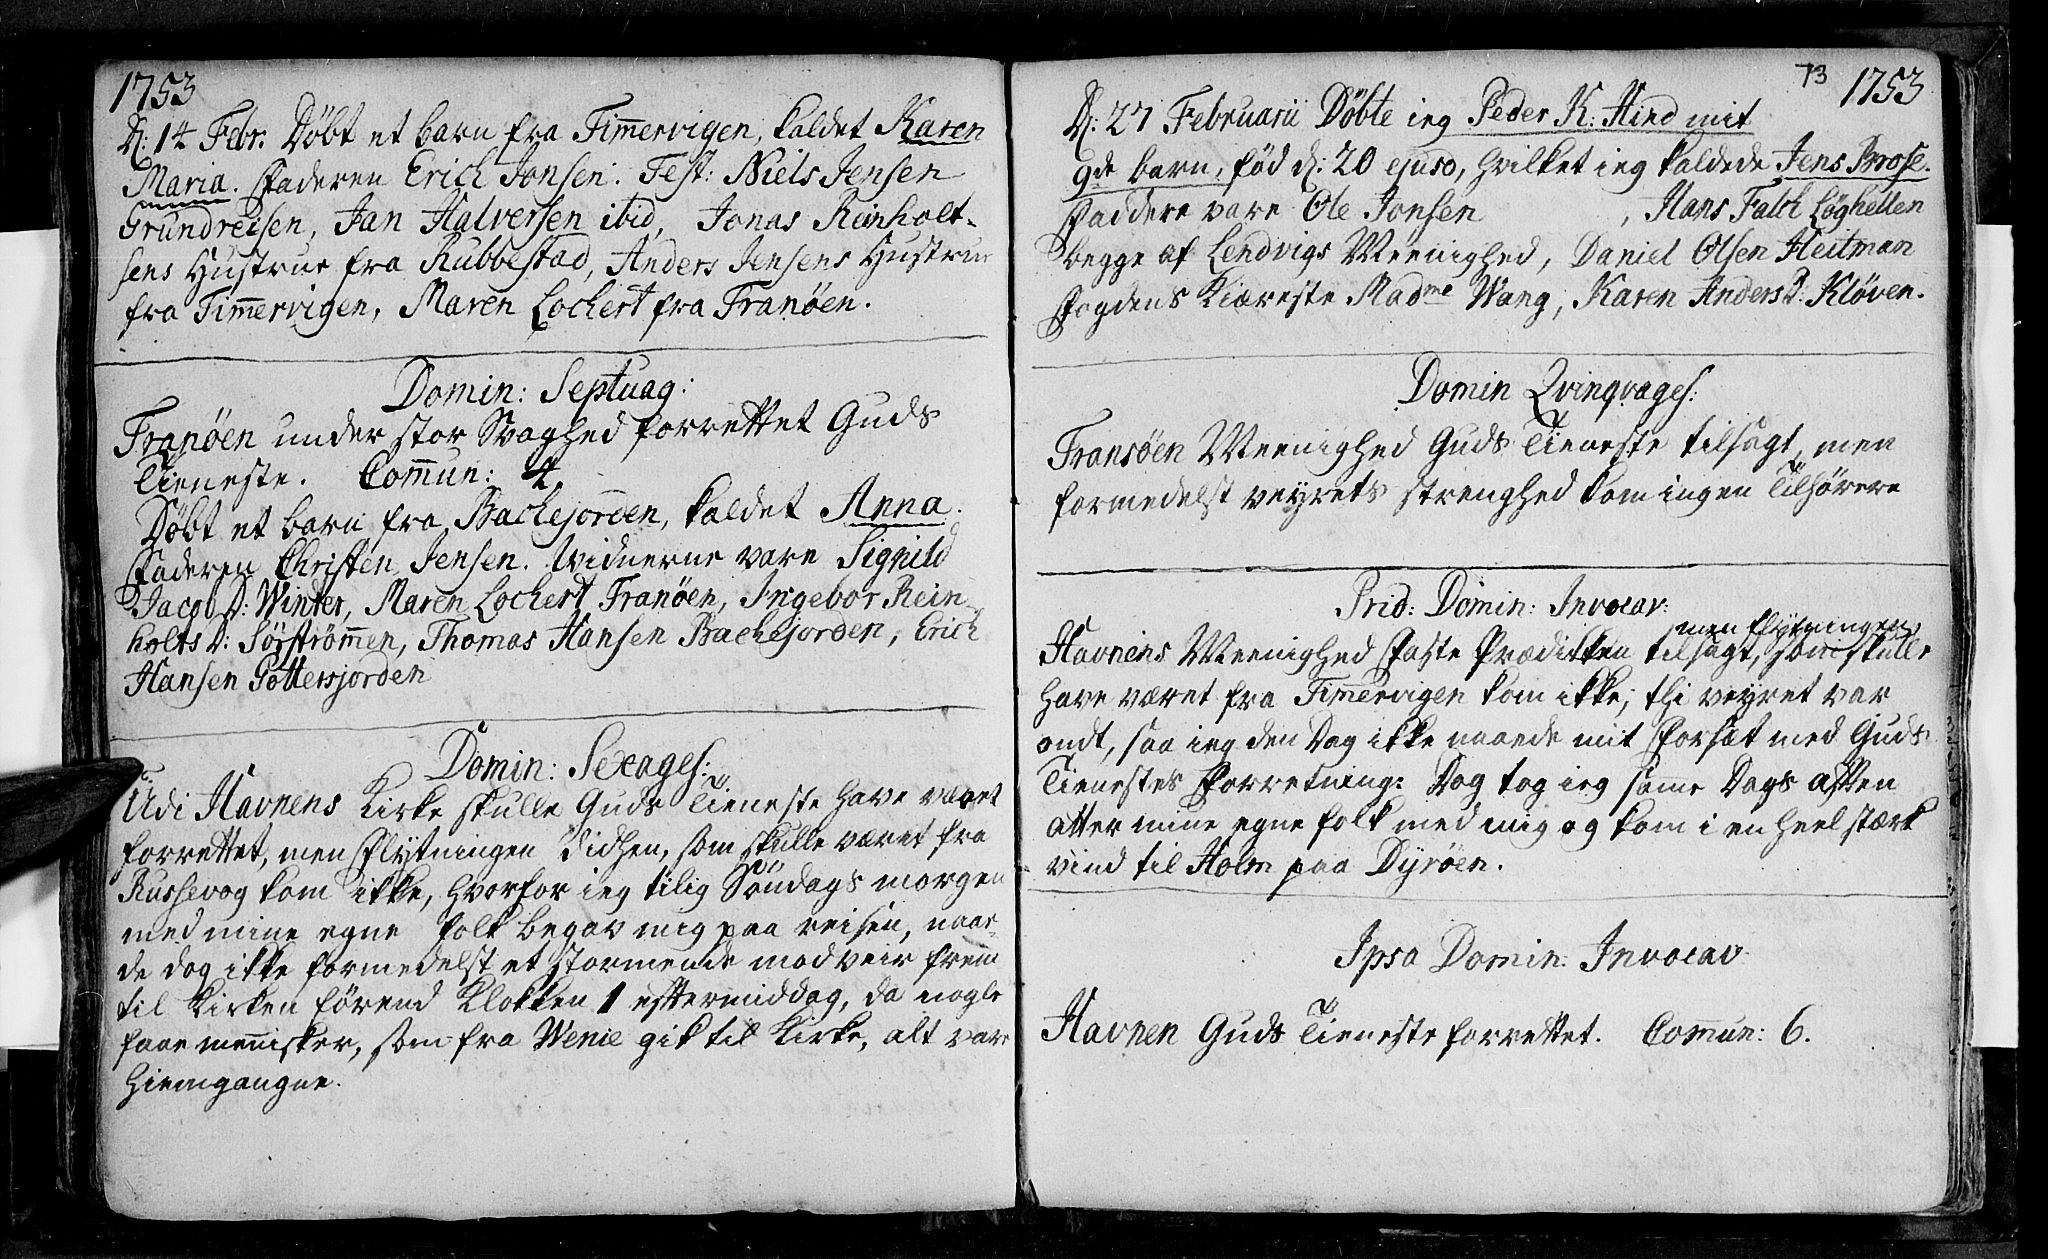 1753
D: 14 Febr. Døbt et barn fra Tim̄ervigen, kaldet Karen
Maria. Faderen Erich Jonsen. Test: Niels Jensen
Grundreisen, Jan Halversen ibid, Jonas Reinholt-
sens Hustrue fra Rubbestad, Anders Jensens Hustrue
fra Tim̄ervigen, Maren Lochert fra Tranöen.
Domin: Septuag:
Tranöen under stor Svaghed forrettet Guds
Tieneste. Com̄un: 4.
Døbt et barn fra Bachejorden, kaldet Anna.
Faderen Christen Jensen. Vidnerne vare Signild
Jacobs D: Winter, Maren Lochert Tranöen, Ingebor Rein
holts D: Söÿström̄en, Thomas Hansen Bachejorden, Erich
Hansen Pottersjorden
Domin: Sexages:
Udi Havnens Kirke skulle Guds Tieneste have været
forrettet, men Flytningen didhen, som skulle været fra
Russevog kom ikke, hvorfor ieg tilig Söndags morgen
med mine egne folk begav mig paa reisen, naae-
de dog ikke formedelst et stormende modveir frem
til Kirken förend Klokken 1 efftermiddag, da nogle
faae men̄isker, som fra Wenie gik til Kirke, alt vare
hiemgangne.
73 1753
D: 27 Februarii Døbte ieg Peder K: Hind mit
9de barn, fød d: 20 ejusd, hvilket ieg kaldede Jens Brose.
Faddere vare Ole Jonsen , Hans Falch Løghellen
begge af Lendvigs Meenighed, Daniel Olsen Heitman
Fogdens Kiæreste Madme Wang, Karen Anders D: Kløven.
Domin Qvinqvages:
Transöen Meenighed Guds Tieneste tilsagt, men
formedelst veyrets strenghed kom ingen Tilhørere
Prid: Domin: Invocav:
men Flytningen
Havnens Meenighed Faste Prædiken tilsagt, som skulle
have været fra Tim̄ervigen kom ikke, thi veyret var
ondt, saa ieg den Dag ikke naaede mit Forsæt med Guds
Tienestes Forretning: Dog tog ieg sam̄e Dags afften
atter mine egne folk med mig og kom i en heel stærk
vind til Holm paa Dyröen.
Ipsa Domin: Invocav:
Havnen Guds Tieneste forrettet. Com̄un: 6.